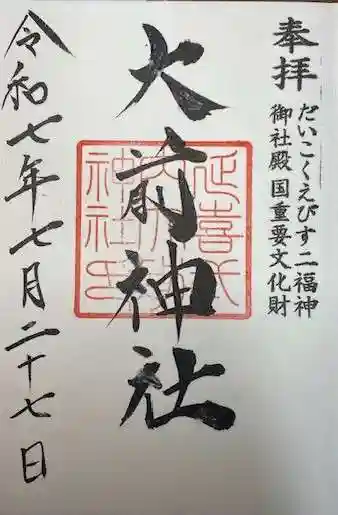 奉拝
だいこくえびす二福神
御社殿国重要文化財
大前神社
令和七年七月二十七日